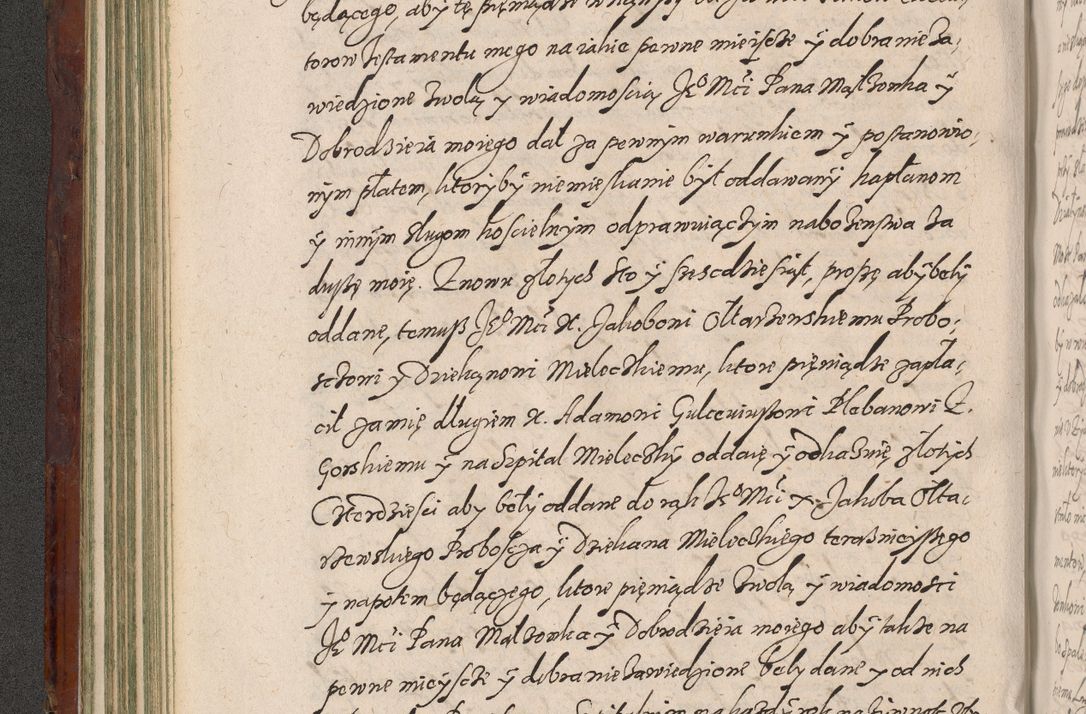 będącego, aby tę pieniądze
torow testamentu mego na iakie pewne mieisce ÿ dobra nieza,
wiedzione zwolą y wiadomoscią Jeº Mći Pana Małżonka ÿ
Dobrodzieia moiego dał za pewnym warunkiem ÿ postanowio,
nym płatem, ktoryby niemieskanie był oddawanÿ kapłanom
ÿ innÿm sługom koscielnÿm odprawuiączim nabożenstwa za
duszę moię. Znowu złotych sto ÿ szescdziesiąt, proszę abÿ belÿ
oddane, temusz Jeº Mći X. Jakoboni Ołtarzenskiemu Probo,
sczowi ÿ Dziekąnowi Mieleczkiemu, ktore pieniądze zapła,
cił za mię długiem X. Adamowi Gulceviuszowi Plebanowi Z.
Gorskiemu ÿ na Szpital Mieleczkÿ oddaię ÿ odkazuię złotych
Czterdziesci aby belÿ oddane do rąk Jeº Mći X. Jakoba Ołta,
rzewskiego Proboscza ÿ Dziekana Mieleckiego teraznieiszego
ÿ napotem będączego, ktore pieniądze zwolą ÿ wiadomosci
Jeº Mći Pana Małżonka ÿ Dobrodzieia moiego abÿ takze na
pewne mieysce ÿ dobra niezawiedzione belÿ dane y od nich